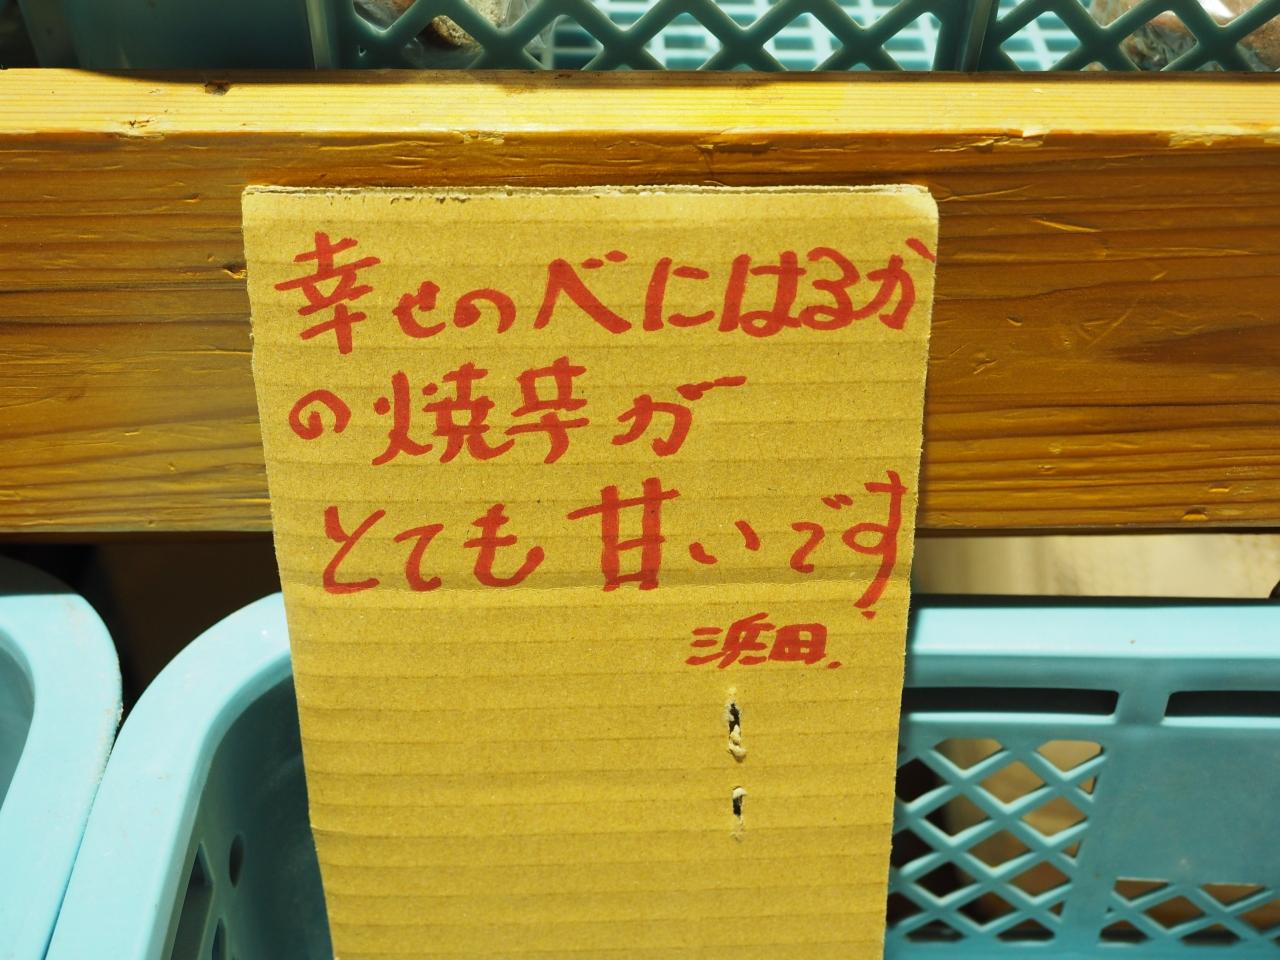 幸せのべにはるか
の焼芋が
とても甘いです
浜田.